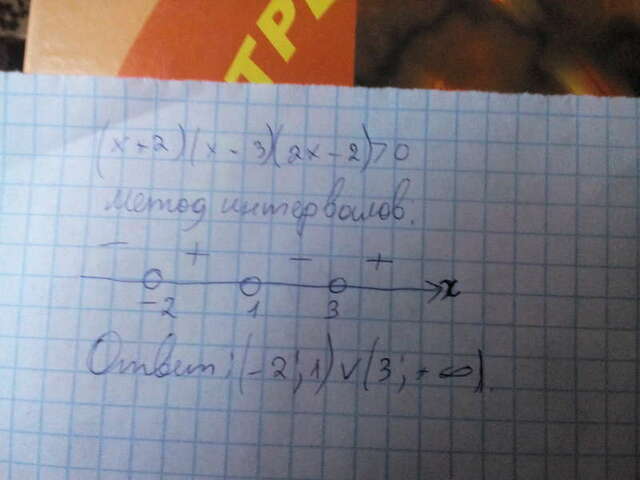 ТРЕ
(x+2)(x-3)(2x-2)>0
метод интервалов:
- + - +
-2 1 3 x
Ответ: (-2; 1) ∨ (3; +∞).